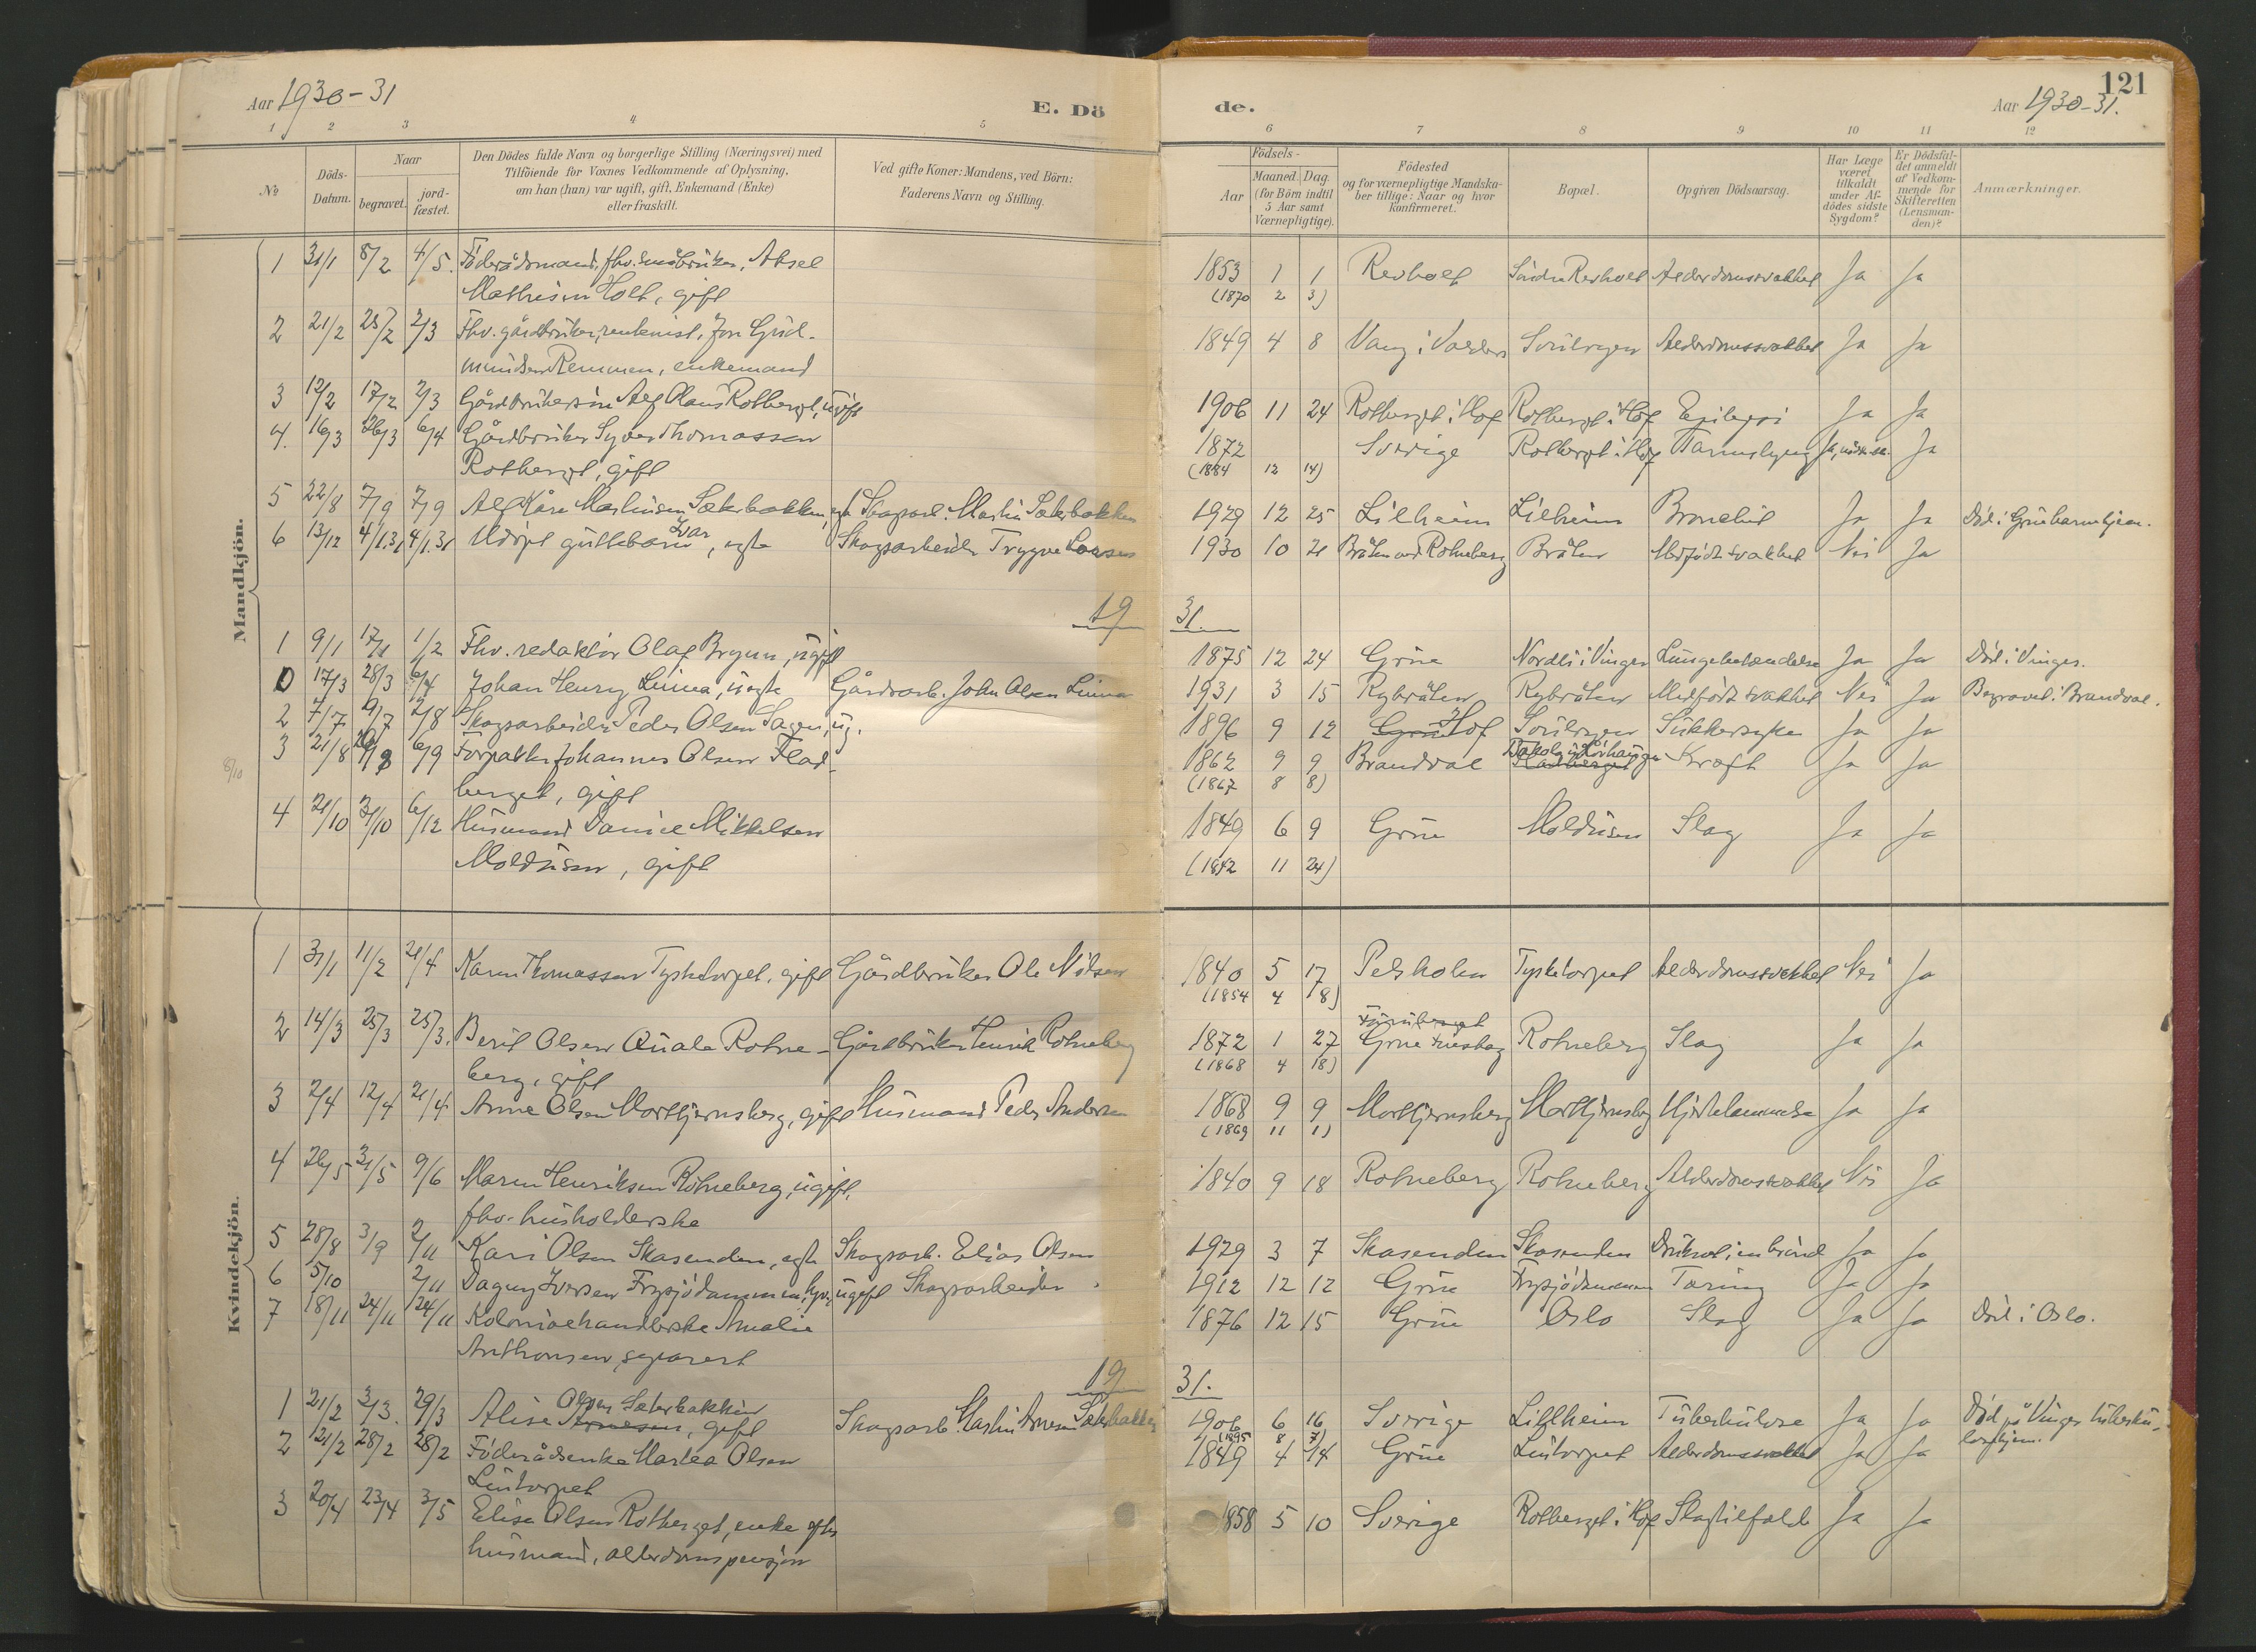 Aar 1930-31
E. Dö
de.
Aar 1930-31.
121
1 2 3 4 5 6 7 8 9 10 11 12
№
Döds-Datum.
Naar
begravet.
jord-fæstet.
Den Dödes fulde Navn og borgerlige Stilling (Næringsvei) med
Tilföiende for Voxnes Vedkommende af Oplysning,
om han (hun) var ugift, gift, Enkemand (Enke)
eller fraskilt.
Ved gifte Koner: Mandens, ved Börn:
Faderens Navn og Stilling.
Födsels-
Aar
Maaned. Dag.
(for Börn indtil
5 Aar samt
Værnepligtige).
Födested
og for værnepligtige Mandska-
ber tillige: Naar og hvor
konfirmeret.
Bopæl.
Opgiven Dödsaarsag.
Har Læge
været
tilkaldt
under Af-
dödes sidste
Sygdom?
Er Dödsfal-
det anmeldt
af Vedkom-
mende for
Skifteretten
(Lensman-
den)?
Anmærkninger.
Mandkjön.
1 31/1 8/2 4/5. Föderådsmand, fhv. småbruker, Aksel 1853 1 1 Revholt Söndre Revholt Alderdomssvakhet Ja Ja
Mathisen Holt, gift (1870 2 3)
2 21/2 25/2 2/3 Fhv. gårdbruker, rentenist, Jon Gud- 1849 4 8 Vang i Valders Soulrygen Alderdomssvakhet Ja Ja
mundsen Remmen, enkemand
3 12/2 17/2 2/3 Gårdbrukersön Alf Olaus Rotberget, ugift 1906 11 24 Rotberget i Hof Rotberget i Hof Epilepsi Ja Ja
4. 16/3 26/3 6/4 Gårdbruker Syver Thomassen 1872 Sverige Rotberget i Hof Ja
Rotberget, gift (1884 12 14)
5 22/8 7/9 7/9 Alf Kåre Martinsen Sæterbakken, egte Skogsarb. Martin Sæterbakken 1929 12 25 Lilheim Lilheim Bronchit Ja Ja Död i Grue barnehjem.
6 13/12 4/1.31 4/1.31 Udöpt guttebarn Ivar, egte Skogsarbeider Trygve Larsen 1930 10 21 Bråten ved Rotneberg Bråten Medfödt svakhet Nei Ja
19 31.
1 9/1 17/1 1/2 Fhv. redaktör Olaf Brynn, ugift 1875 12 24 Grue Nordli i Vinger Lungebetændelse Ja Ja Död i Vinger.
0 17/3 28/3 6/4 Johan Henry Linna, uegte Gårdsarb. John Olsen Linna 1931 3 15 Rybråten Rybråten Medfödt svakhet Nei Ja Begravet i Brandval.
2 7/7 9/7 2/8 Skogsarbeider Peder Olsen Sagen, ug. 1896 9 12 Grue Hof Soulrygen Sukkersyke Ja Ja
3 21/8 6/9 Forpakter Johannes Olsen Flad- 1862 9 9 Brandval Fladberget Kræft Ja Ja
8/10
berget, gift (1867 8 8)
4 21/10 31/10 6/12 Husmand Daniel Mikkelsen 1849 6 9 Grue Moldusen Slag Ja Ja
Moldusen, gift (1842 11 24)
Kvindekjön.
1 31/1 11/2 21/4 Karen Thomassen Tysketorpet, gift Gårdbruker Ole Nilsen 1840 5 17 Peisholen Tysketorpet Alderdomssvakhet Nei Ja
(1854 4 18)
2 14/3 25/3 25/3. Berit Olsen Quale Rotne- Gårdbruker Henrik Rotneberg 1872 1 27 Furuberget Grue Rotneberg Slag Ja Ja
berg, gift (1868 4 18)
3 2/4 12/4 21/4 Anne Olsen Mortkjernsberg, gift Husmand Peder Andersen 1868 9 9 Mortkjernsberg Mortkjernsberg Hjertelammelse Ja Ja
(1869 11 1)
4 26/5 31/5 9/6 Maren Henriksen Rotneberg, ugift, 1840 9 18 Rotneberg Rotneberg Alderdomssvakhet Nei Ja
fhv. husholderske
5 28/8 3/9 2/11 Kari Olsen Skasenden, egte Skogsarb. Elias Olsen 1929 3 7 Skasenden Skasenden Druknet i en brönd Ja Ja
6 5/10 2/11 Dagny Iversen Frysjödammen, ugift Skogsarbeider 1912 12 12 Grue Frysjödammen Tæring Ja Ja
7 18/11 24/11 24/11 Kolonialhandlerske Amalie 1876 12 15 Grue Oslo Slag Ja Ja Död i Oslo.
Anthonsen, separert
19 31.
1 21/2 3/3. 29/3 Alise Arnesen Olsen Sæterbakken, gift Skogsarb. Martin Arnesen Sæterbakken 1906 6 16 Sverige Lillheim Tuberkulose Ja Ja Död på Vinger tuberku-
(1895 8 7) losehjem.
2 21/2 28/2 28/2 Föderådsenke Martea Olsen 1849 4 14 Grue Lintorpet Alderdomssvakhet Ja Ja
Lintorpet
3 20/4 23/4 3/5 Elise Olsen Rotberget, enke efter 1858 5 10 Sverige Rotberget i Hof Slagtilfælde Ja Ja
husmand, alderdomspensjon